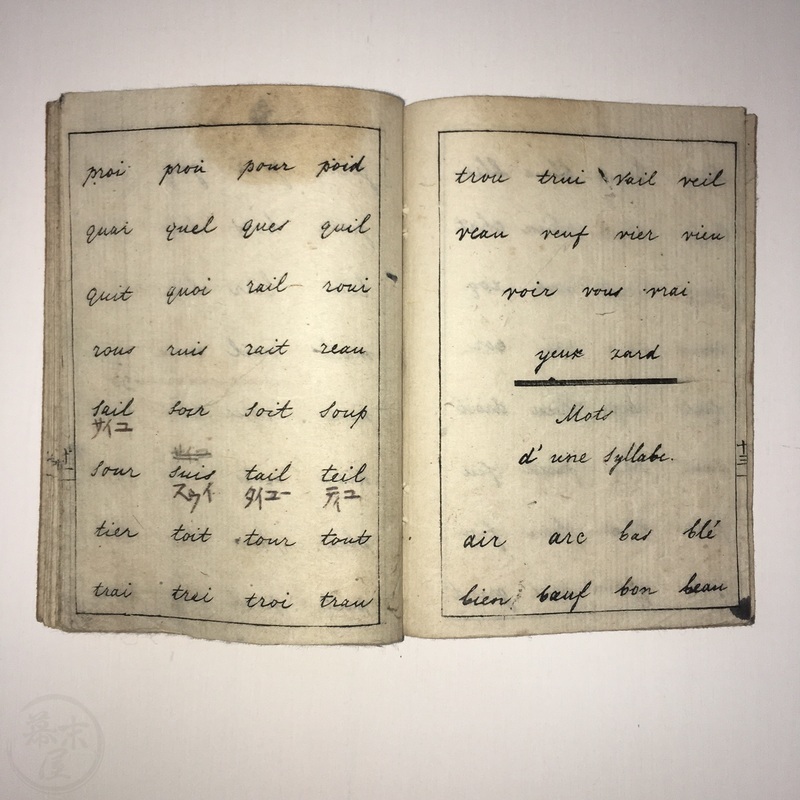 proi prou pour poid
quai quel ques quil
quit quoi rail roui
rous ruis rait reau
sail soir soit soup
サイユ
sour suis tail teil
スウイ タイユー テイユ
tier toit tour tout
trai trei troi trau
trou trui vail veil
veau veuf vier vieu
voir vous vrai
yeux zard
Mots
d'une syllabe.
air arc bas blé
bien bœuf bon beau
十二
十三
幕末屋